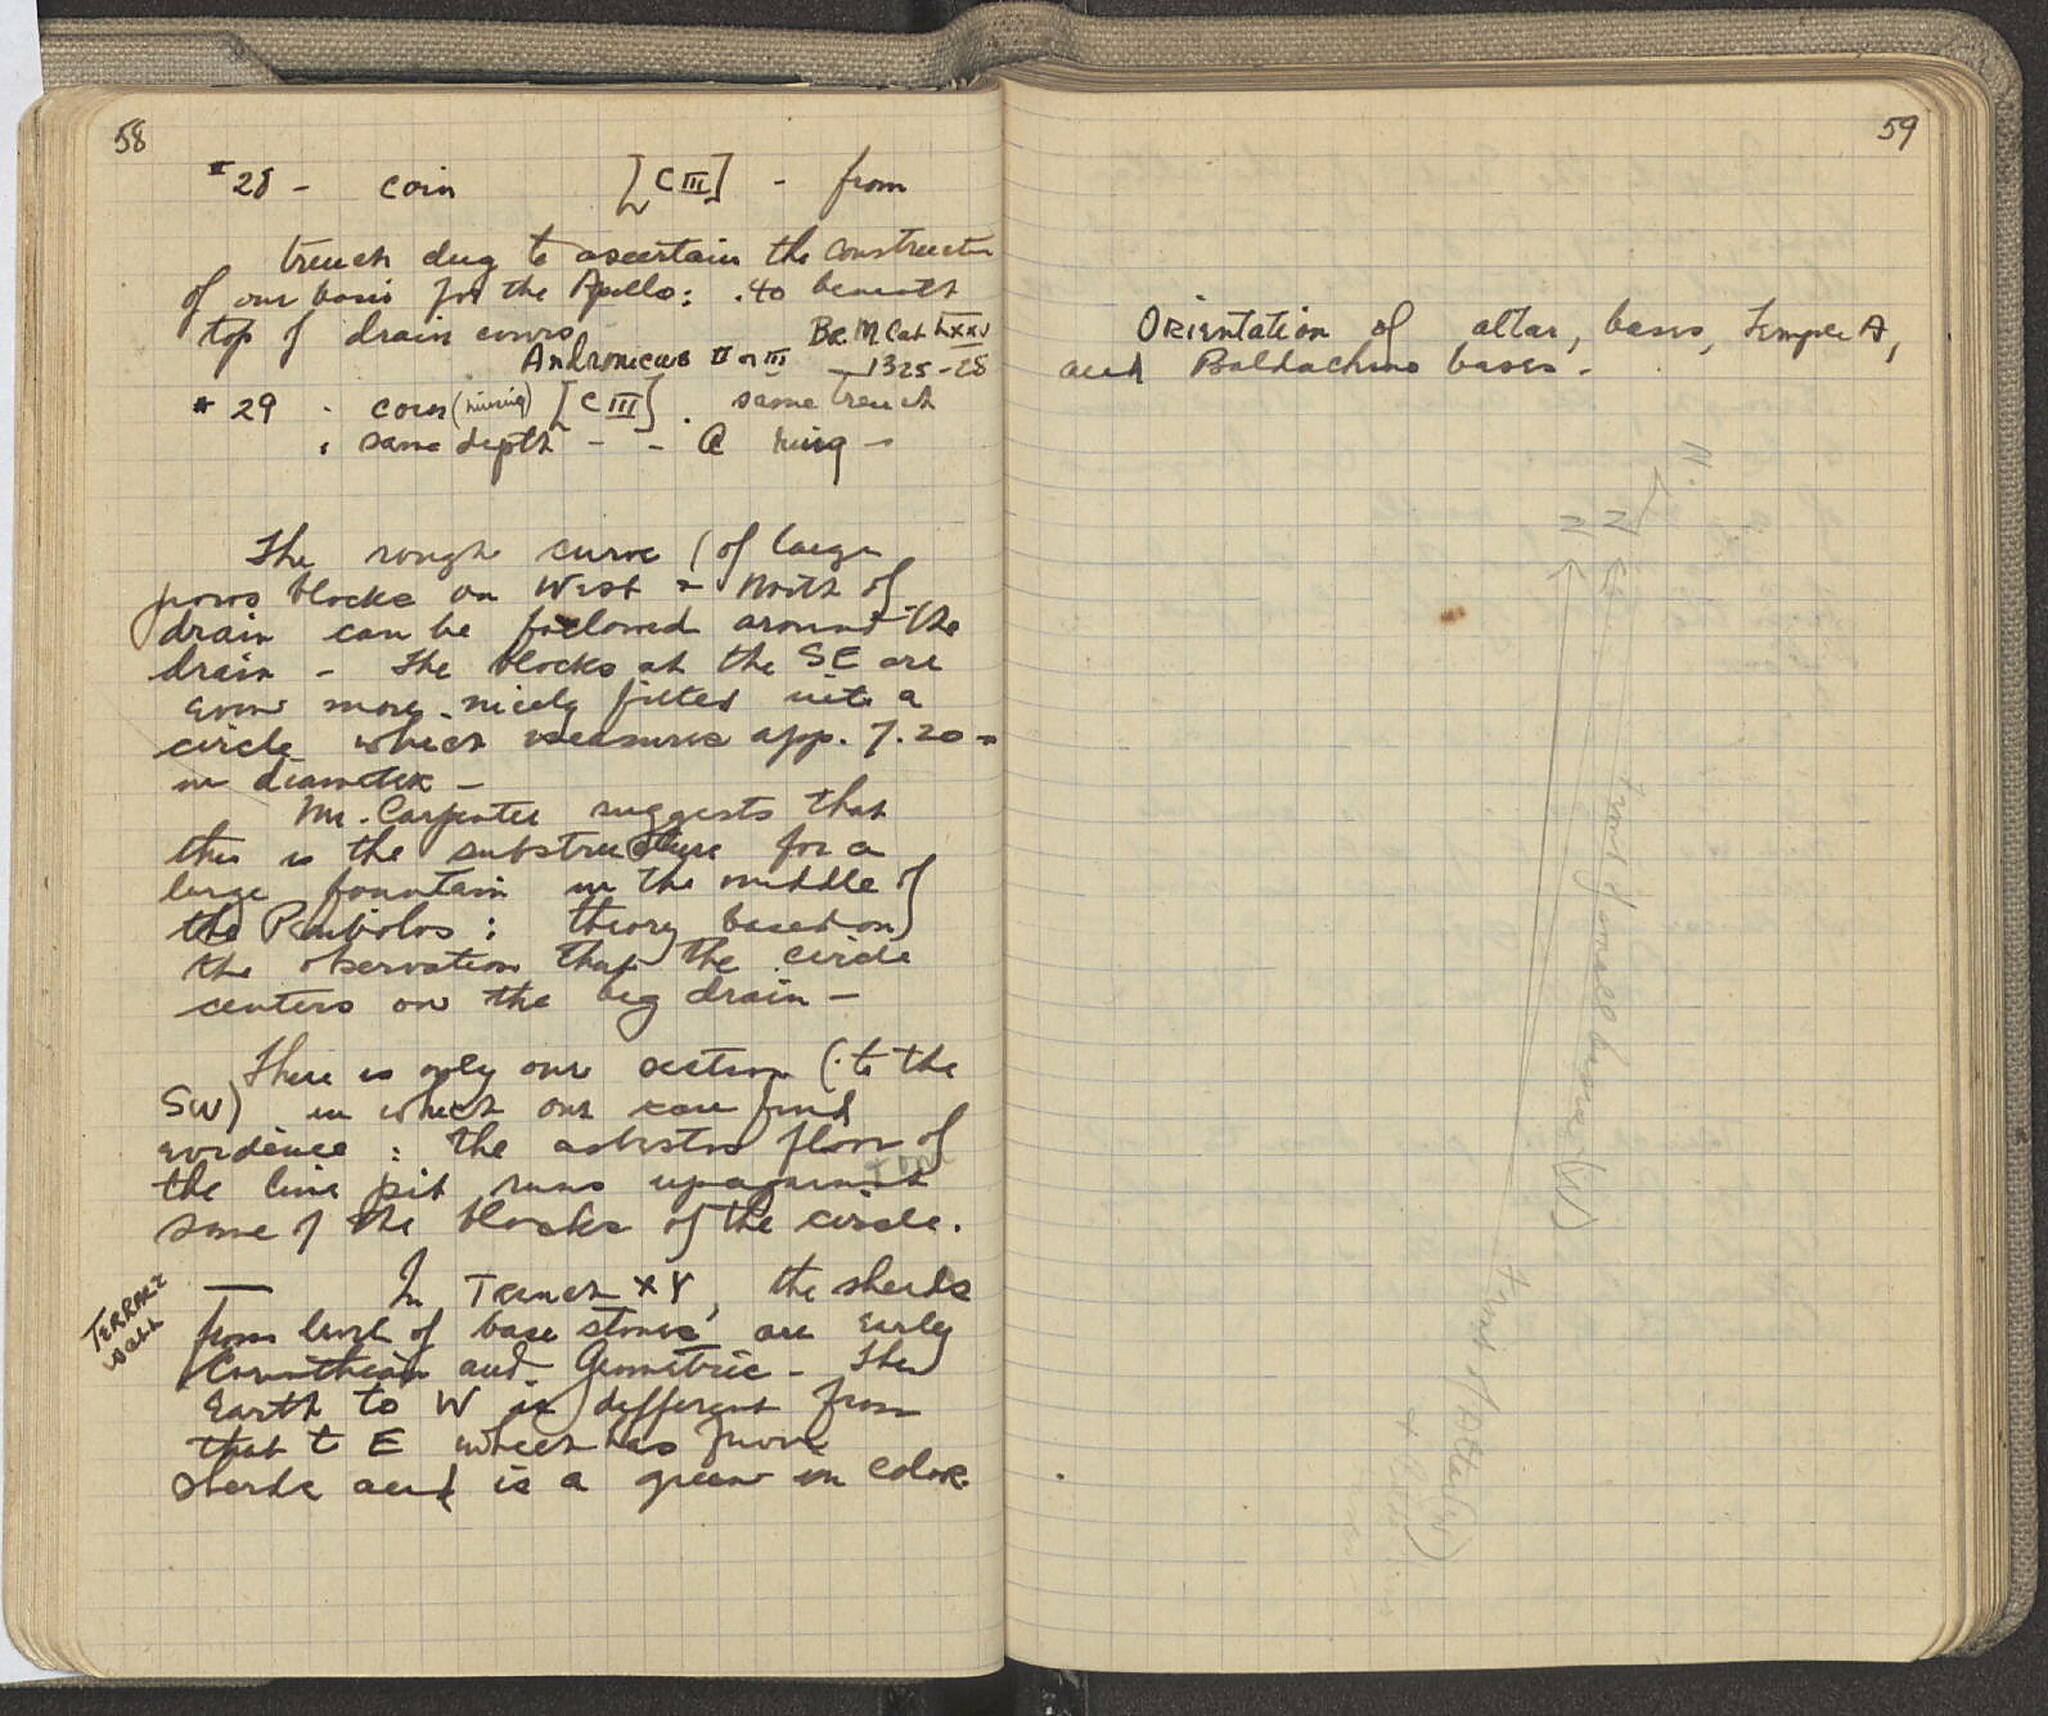 58
#28 - coin [C III] - from
trench dug to ascertain the constructn
of our basis for the Apollo: .40 beneath
top of drain covers
Br. M. Cat LXXV
Andronicus II or III - 1325-28
#29 - coin (missing) [C III]. same trench
, same depth - - Æ ring -
The rough curve (of large
poros blocks on West & North of
drain can be followed around the
drain - The blocks at the SE are
even more nicely fitted into a
circle which measures app. 7.20 m
in diameter -
Mr. Carpenter suggests that
this is the substructure for a
large fountain in the middle of
the Peribolos : theory based on
the observation that the circle
centers on the big drain -
There is only one section (to the
SW) in which one can find
evidence : the asbestos floor of
the lime pit runs up against
some of the blocks of the circle.
TERRACE
WALL
In Trench XY, the sherds
from level of base stones are Early
Corinthian and Geometric - The
Earth to W is different from
that to E which has more
sherds and is a green in color.
59
Orientation of altar, bases, Temple A,
and Baldachino bases -
N
N
N
Front of small base (W)
Front of Altar (W)